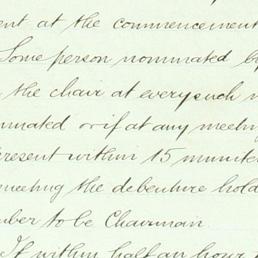 ent at the commencement
Some person nominated by
the chair at every such m
minated or if at any meeting
present within 15 minutes
meeting the debenture hold
ber to be Chairman.
If within half an hour